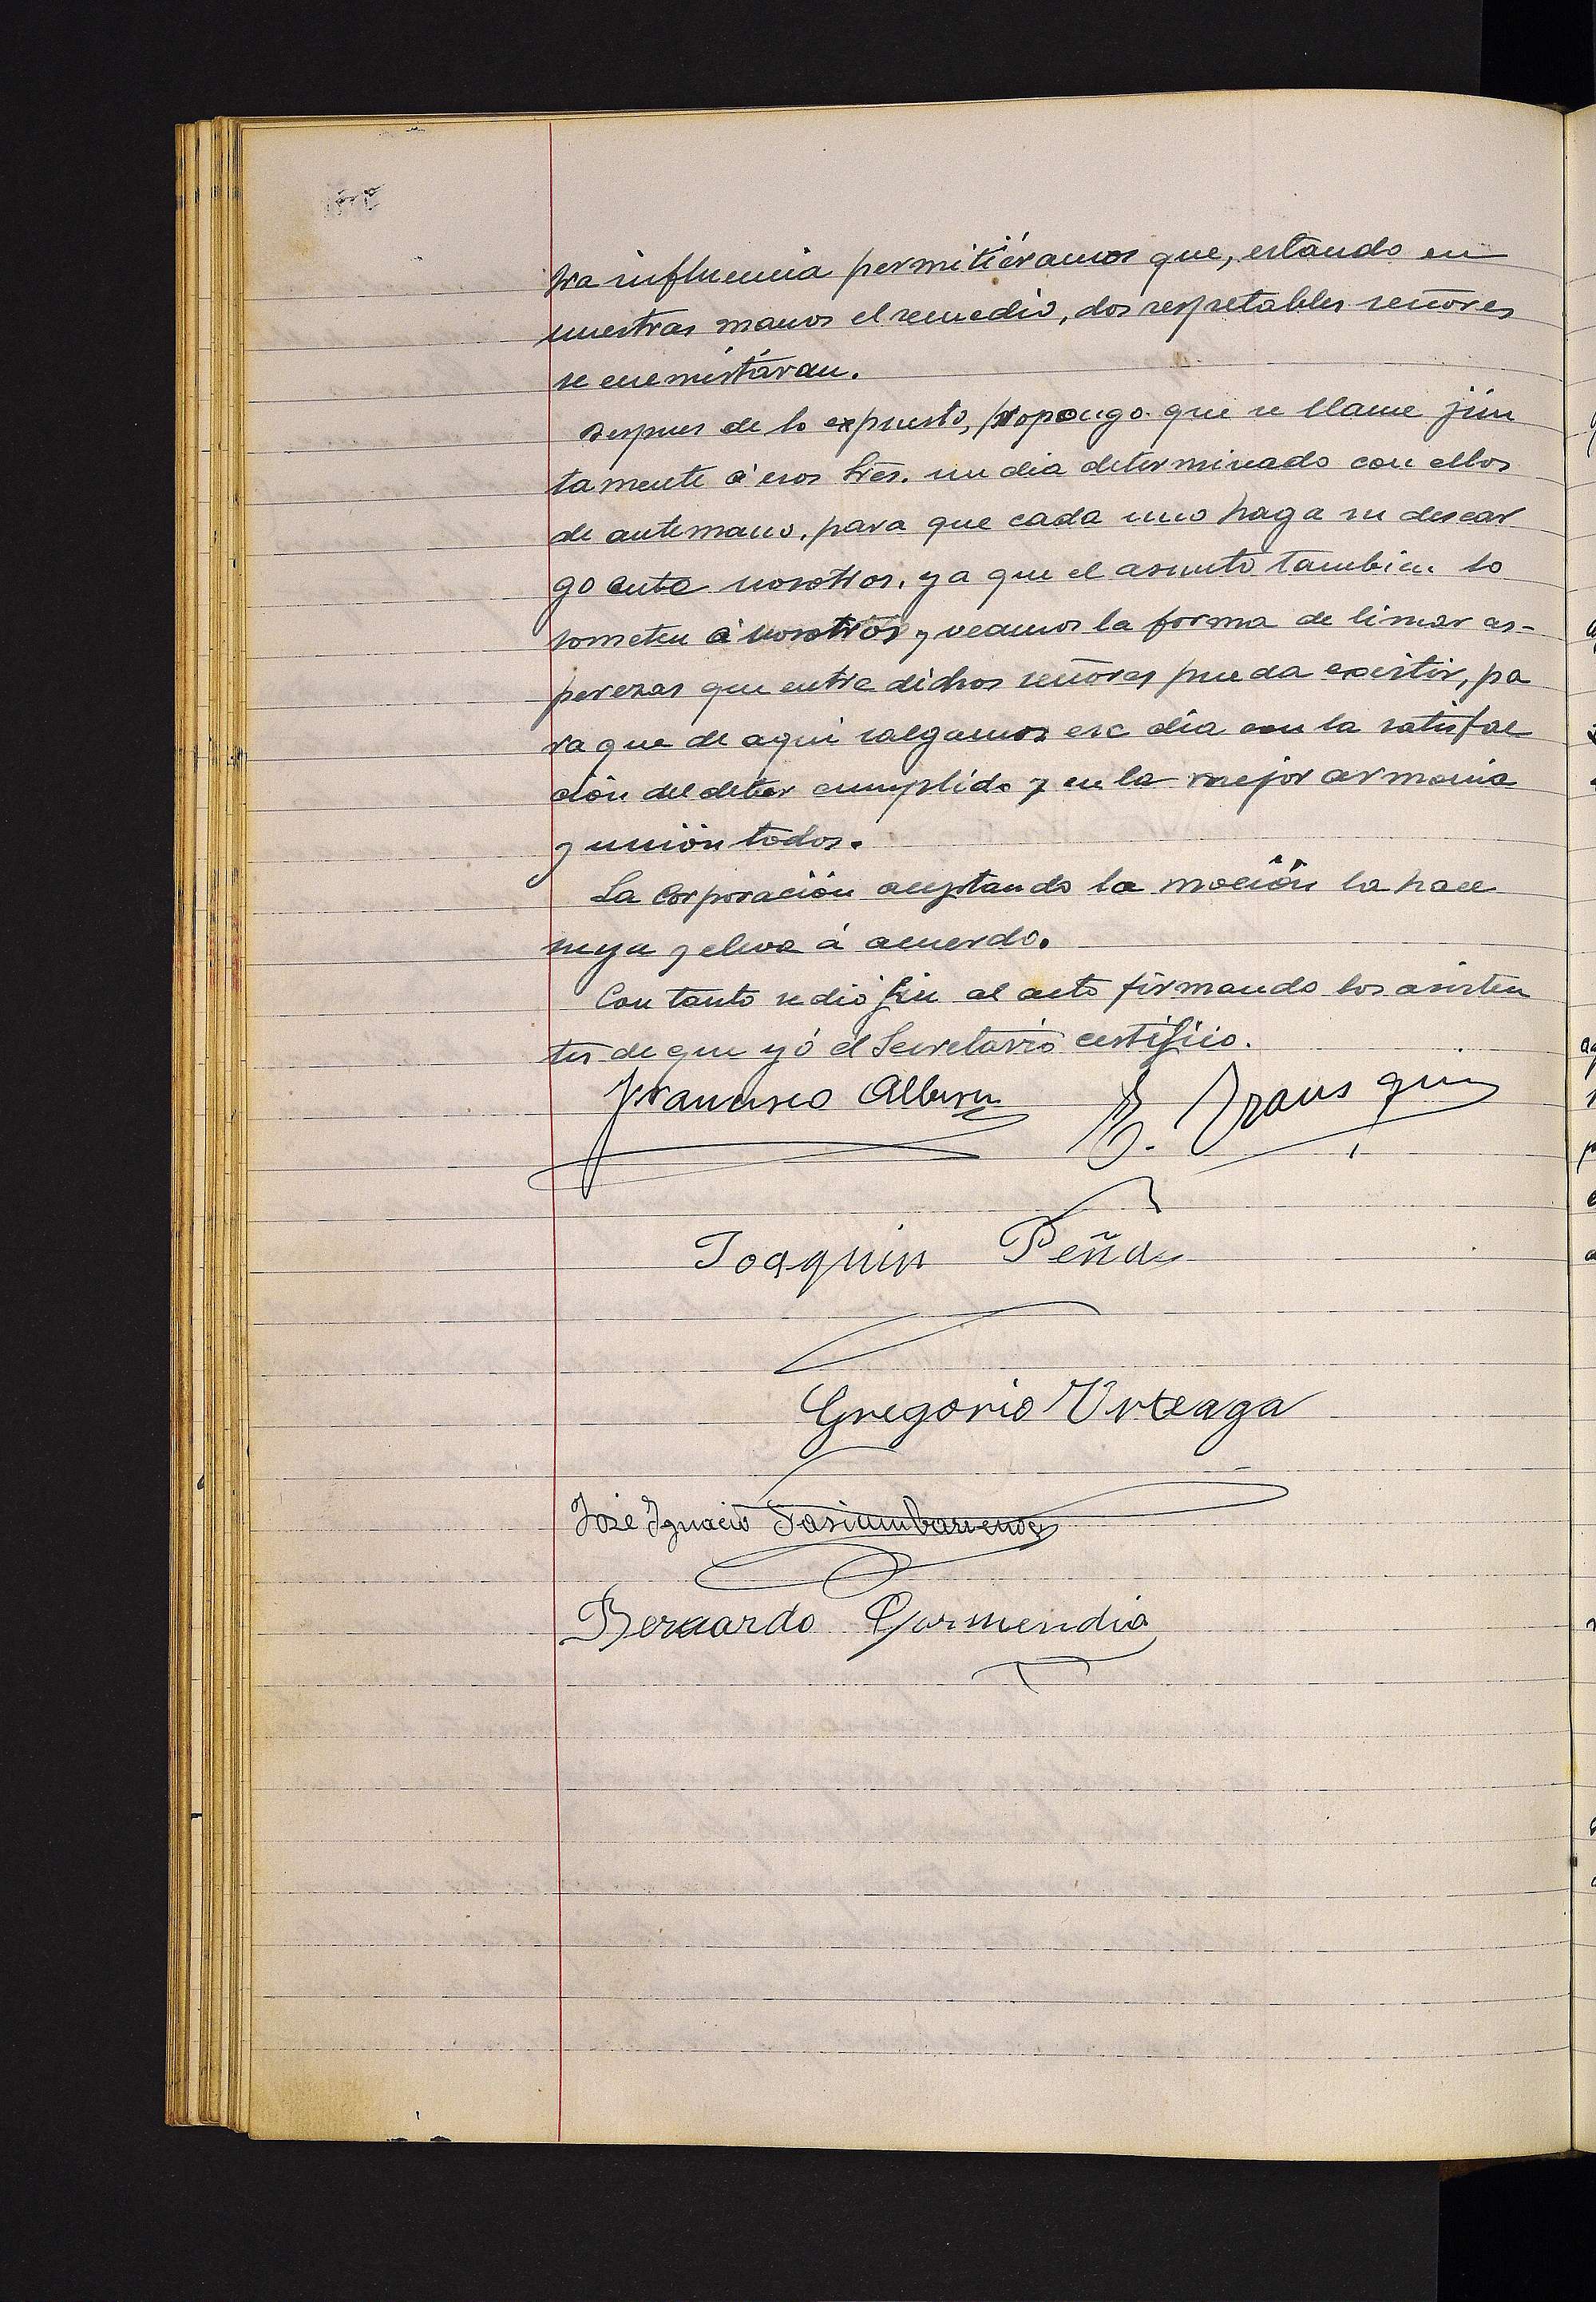 tra influencia permitiéramos que, estando en
nuestras manos el remedio, dos respetables señores
se enemistáran.
Despues de lo expuesto, propongo que se llame jún
tamente á esos Sres. un dia determinado con ellos
de antemano, para que cada uno haga su descar
go ante nosotros, ya que el asunto tambien lo
someten á nosotros, y veamos la forma de limar as-
perezas que entre dichos señores pueda existir, pa
ra que de aqui salgamos ese dia con la satisfac
ción del deber cumplido y en la mejor armonia
y unión todos.
La Corporación aceptando la moción la hace
suya y eleva á acuerdo.
Con tanto se dió fin al acto firmando los asisten
tes de que yó el Secretario certifico.
Francisco Albisu
E. Irausquin
Joaquin Peña
Gregorio Urteaga
José Ignacio
Bernardo Garmendia